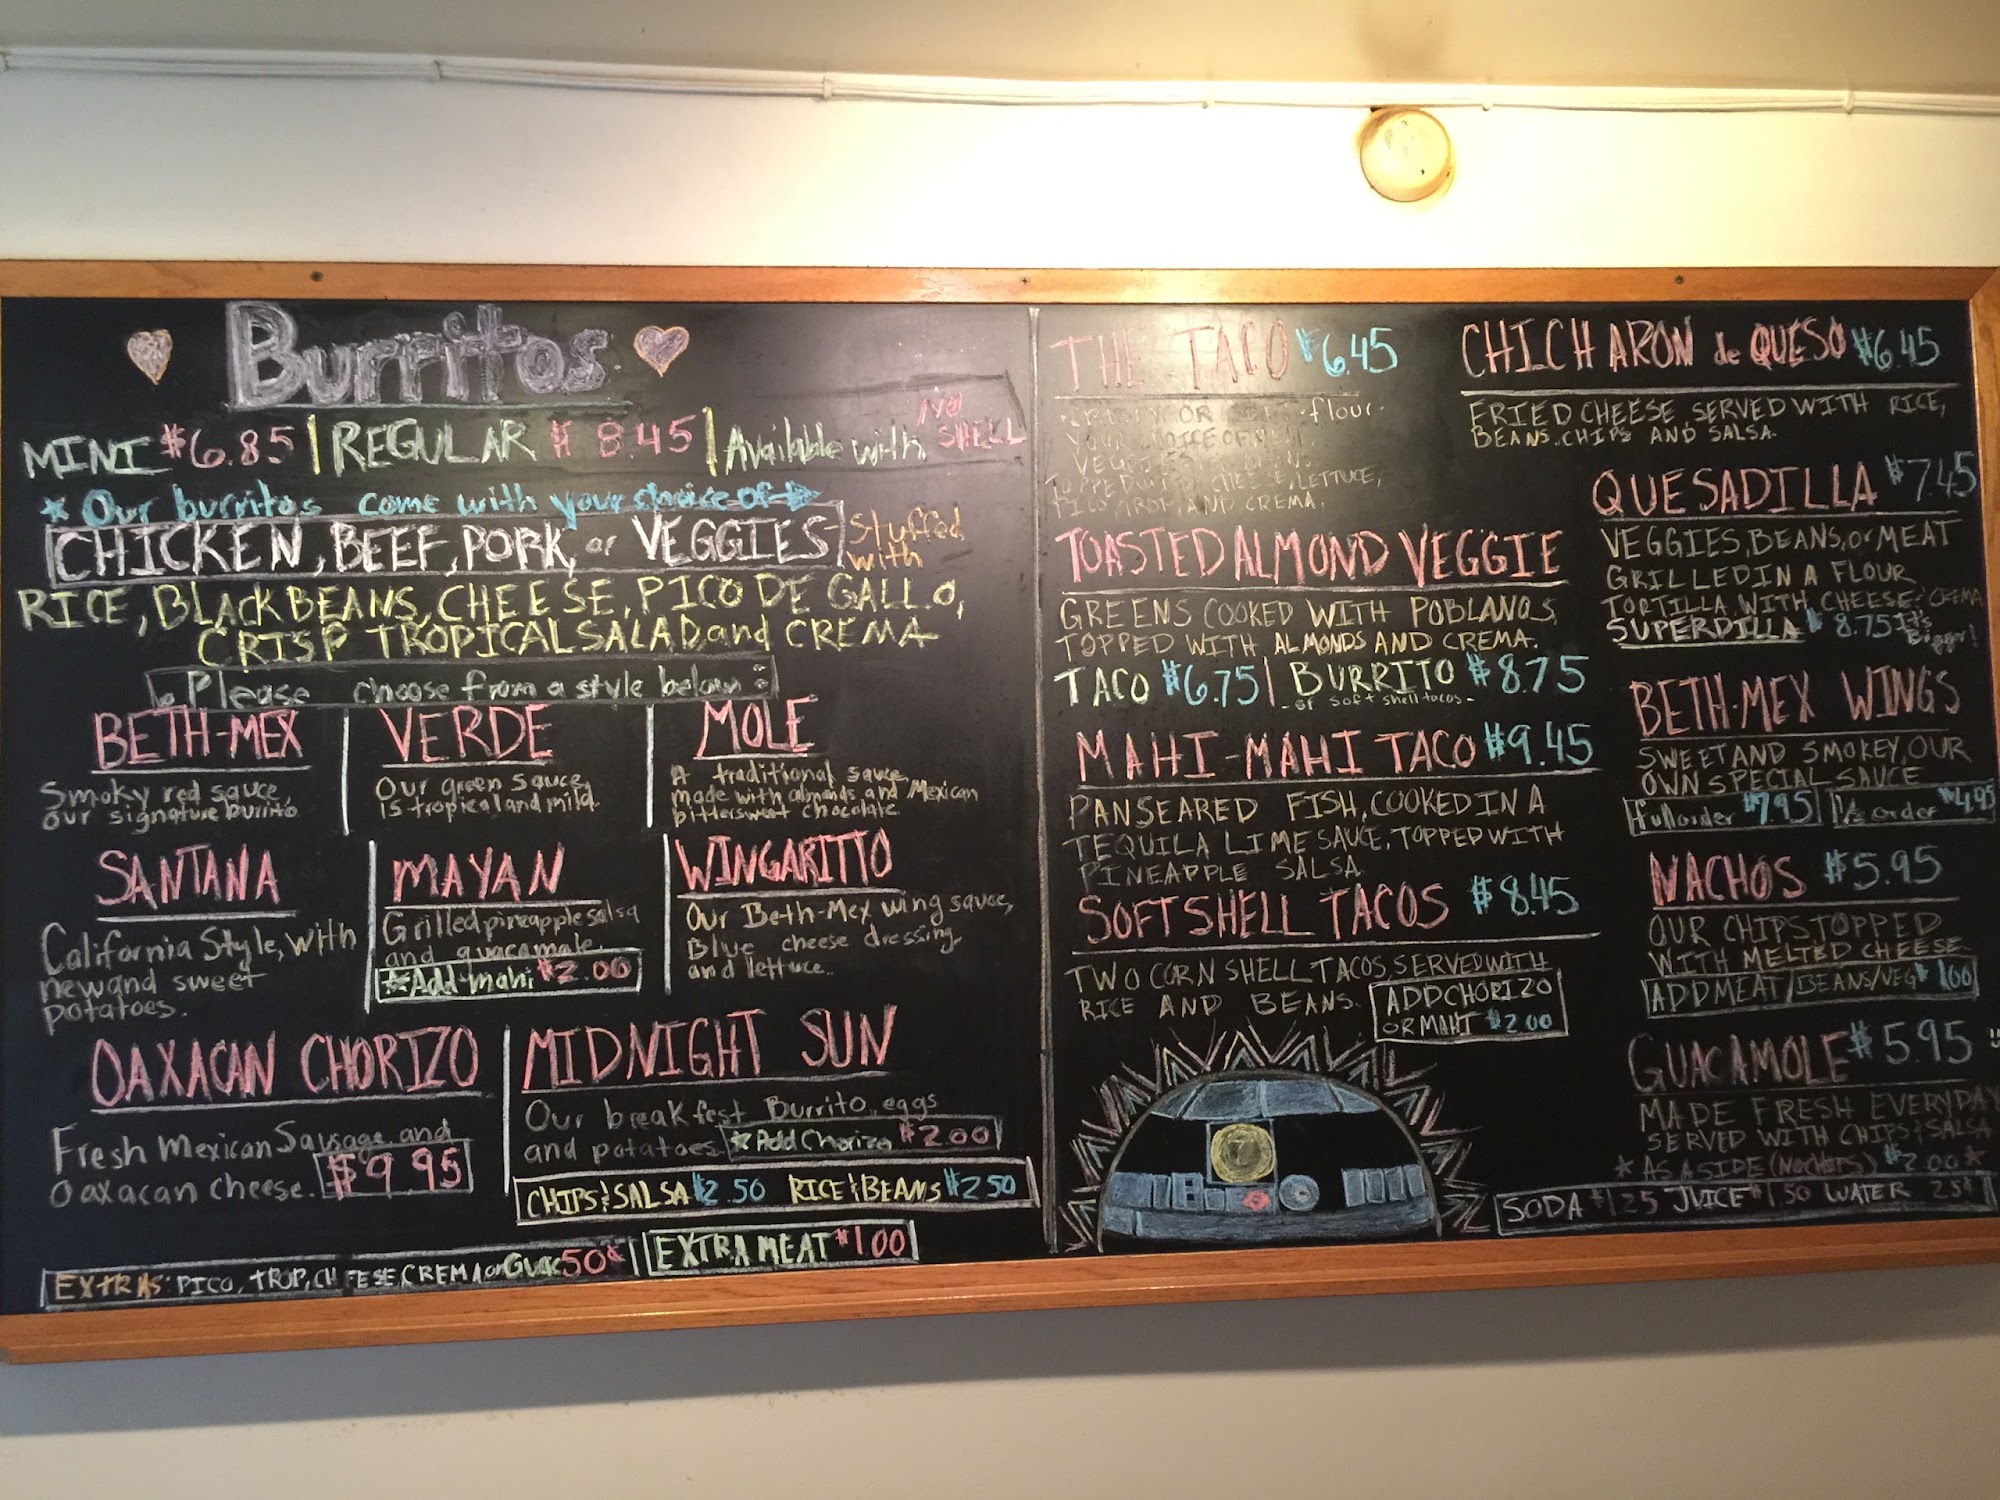 Burritos
MINI $6.85 | REGULAR $8.45 | Available with NO SHELL
* Our burritos come with your choice of
CHICKEN, BEEF, PORK, or VEGGIES - Stuffed with
RICE, BLACK BEANS, CHEESE, PICO DE GALLO,
CRISP TROPICAL SALAD, and CREMA
Please choose from a style below:
BETH-MEX
Smoky red sauce,
our signature burrito.
VERDE
Our green sauce,
is tropical and mild.
MOLE
A traditional sauce,
made with almonds and Mexican
bittersweet chocolate.
SANTANA
California Style, with
new and sweet
potatoes.
MAYAN
Grilled pineapple salsa
and guacamole.
* Add mahi $2.00
WINGARITTO
Our Beth-Mex wing sauce,
Blue cheese dressing,
and lettuce.
OAXACAN CHORIZO
Fresh Mexican Sausage and
Oaxacan cheese. $9.95
MIDNIGHT SUN
Our breakfest Burrito, eggs
and potatoes. * Add Chorizo $2.00
CHIPS & SALSA $2.50 RICE & BEANS $2.50
EXTRAS: PICO, TROP, CHEESE, CREMA or Guac 50¢
EXTRA MEAT $1.00
THE TACO $6.45
CRISPY OR SOFT flour.
YOUR CHOICE OF MEAT,
VEGGIES
TOPPED WITH CHEESE, LETTUCE,
PICO, TROP, AND CREMA.
TOASTED ALMOND VEGGIE
GREENS COOKED WITH POBLANOS,
TOPPED WITH ALMONDS AND CREMA.
TACO $6.75 | BURRITO $8.75
- or soft shell tacos -
MAHI-MAHI TACO $9.45
PANSEARED FISH, COOKED IN A
TEQUILA LIME SAUCE, TOPPED WITH
PINEAPPLE SALSA.
SOFT SHELL TACOS $8.45
TWO CORN SHELL TACOS, SERVED WITH
RICE AND BEANS.
ADD CHORIZO
OR MAHI $2.00
CHICHARON de QUESO $6.45
FRIED CHEESE SERVED WITH RICE,
BEANS, CHIPS AND SALSA.
QUESADILLA $7.45
VEGGIES, BEANS, or MEAT
GRILLED IN A FLOUR
TORTILLA WITH CHEESE & CREMA
SUPERDILLA $8.75 It's Bigger!
BETH-MEX WINGS
SWEET AND SMOKEY, OUR
OWN SPECIAL SAUCE
full order $7.95 1/2 order $4.95
NACHOS $5.95
OUR CHIPS TOPPED
WITH MELTED CHEESE.
ADD MEAT/BEANS/VEG $1.00
GUACAMOLE $5.95
MADE FRESH EVERYDAY
SERVED WITH CHIPS & SALSA
* AS A SIDE (No CHIPS) $2.00 *
SODA $1.25 JUICE $1.50 WATER 25¢